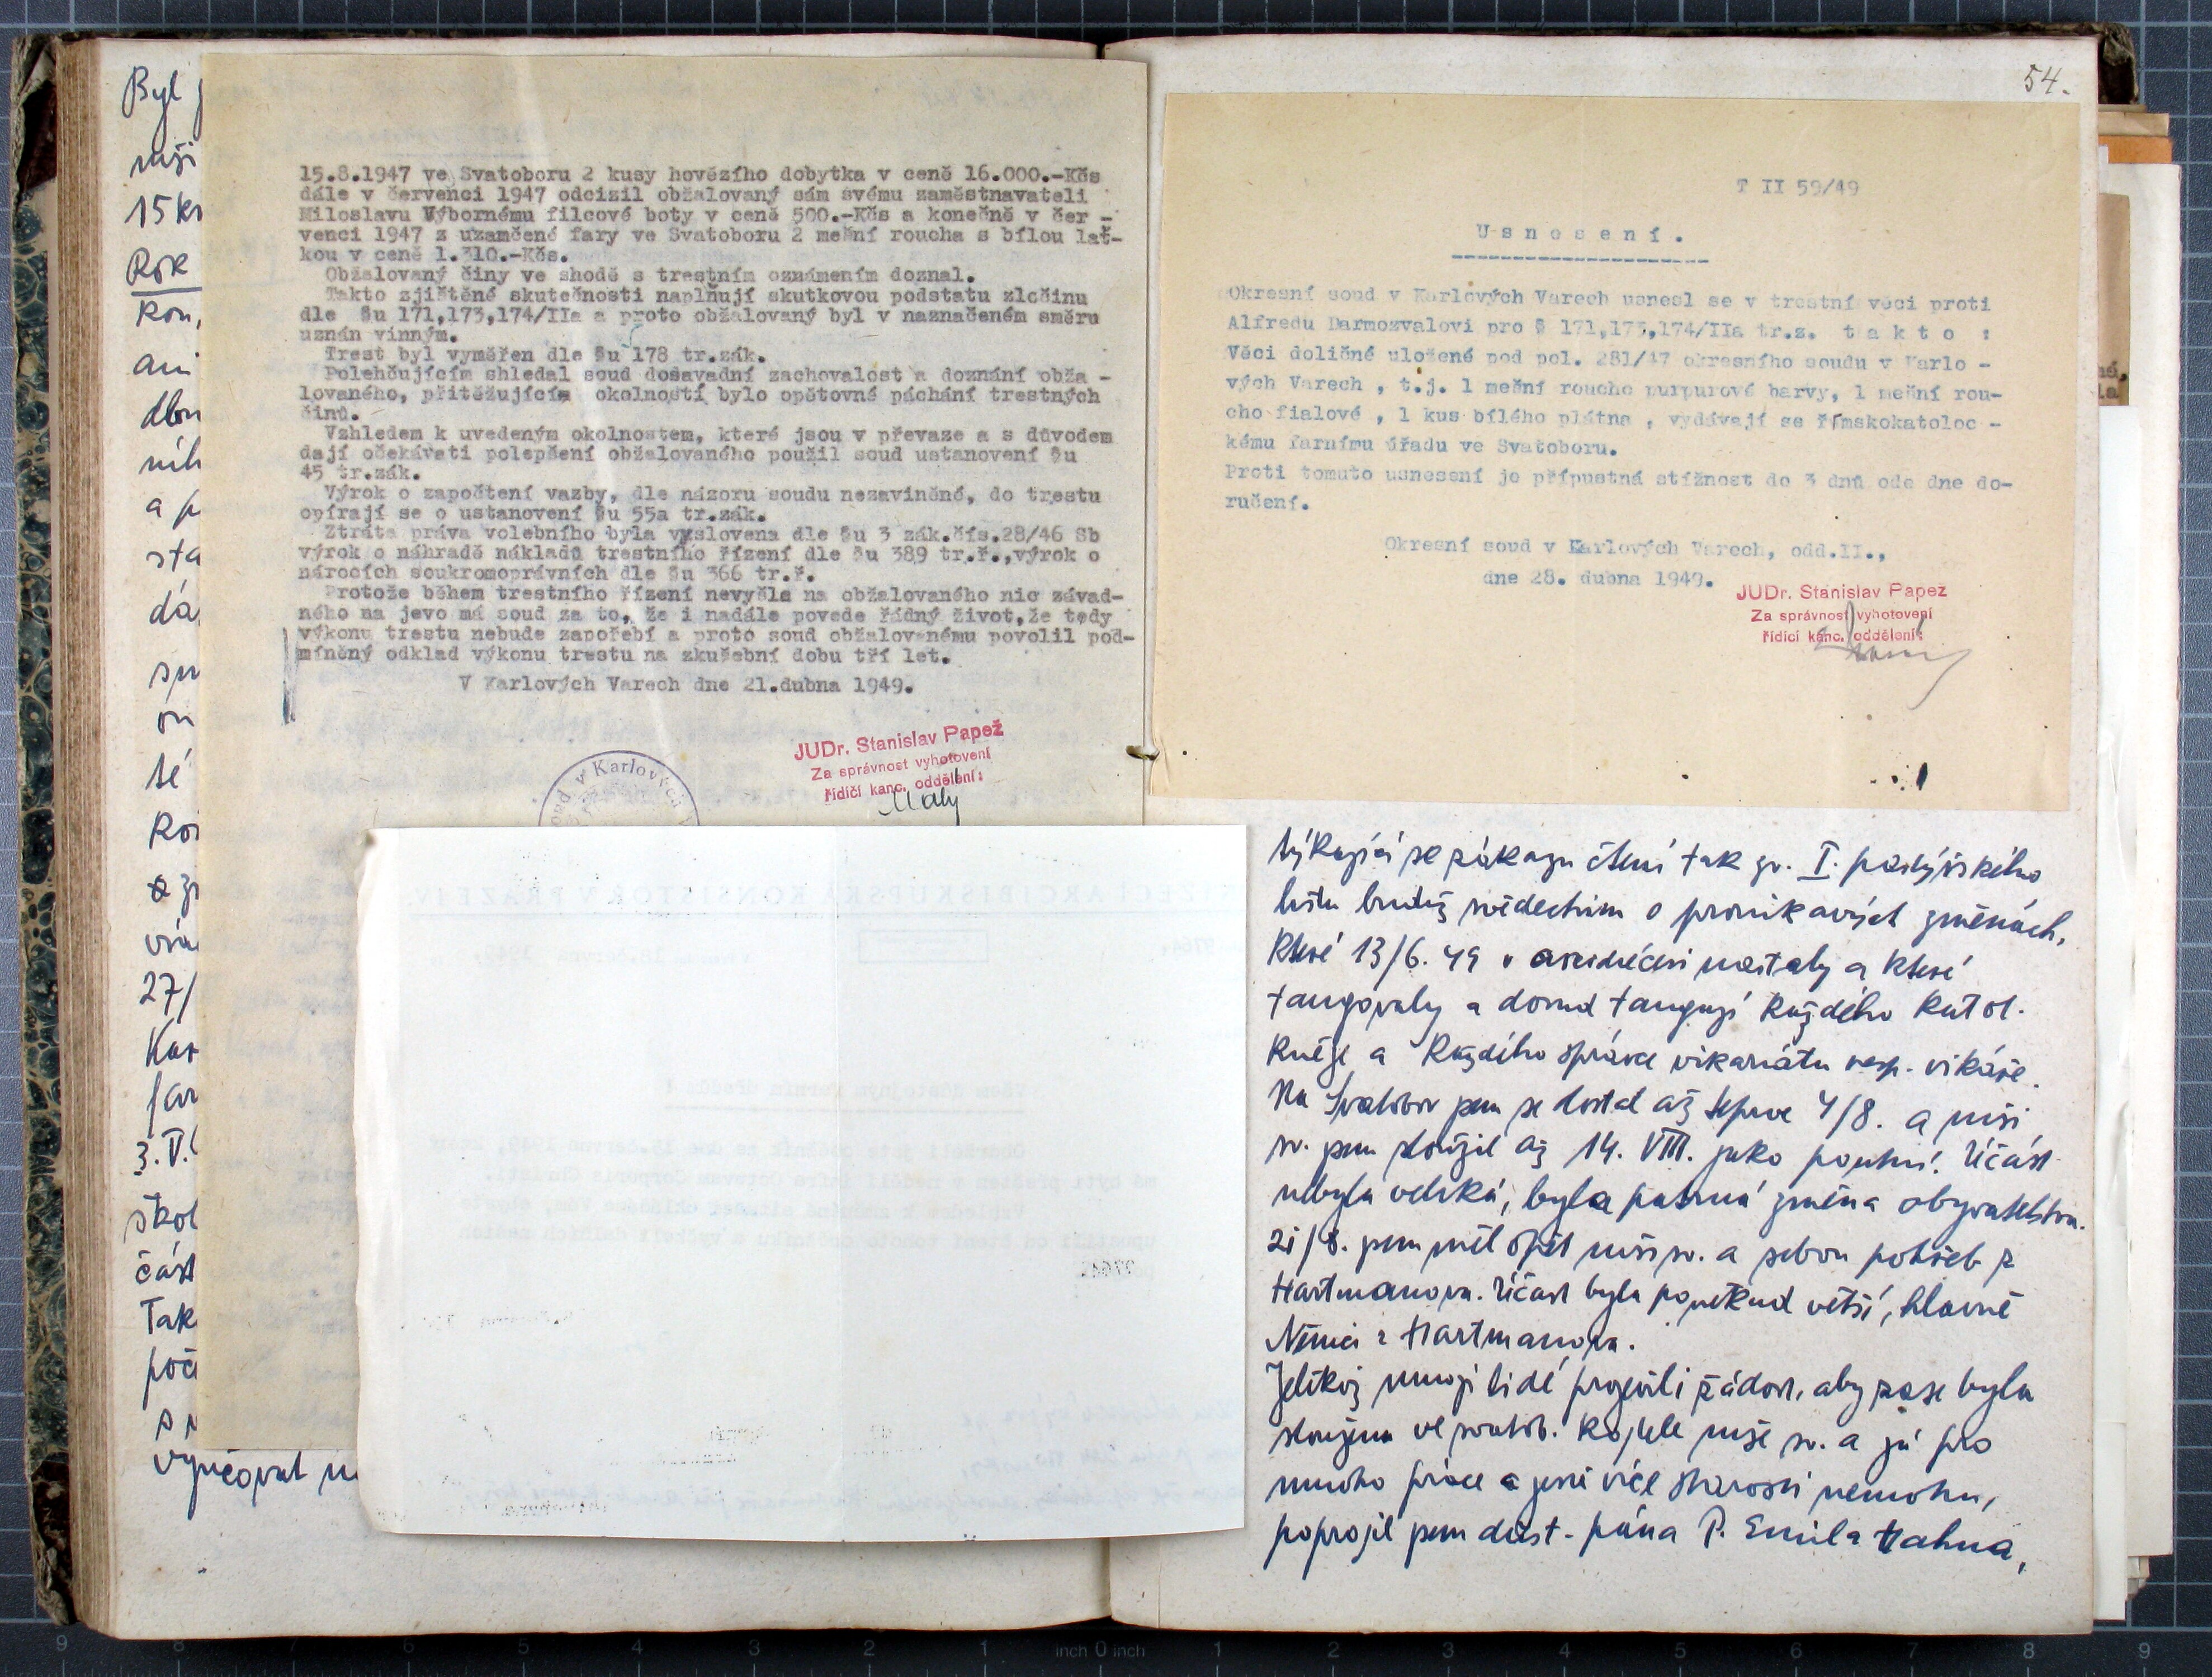 Byl
mši
15 kr
Rok
kon,
ani
dbn
níh
a p
sta
dá,
té
vrá
27/
Kar
far
3. V.
škol
část
Tak
poč
15.8.1947 ve Svatoboru 2 kusy hovězího dobytka v ceně 16.000.-Kčs
dále v červenci 1947 odcizil obžalovaný sám svému zaměstnavateli
Miloslavu Výbornému filcové boty v ceně 500.-Kčs a konečně v čer -
venci 1947 z uzamčené fary ve Svatoboru 2 mešní roucha s bílou lát-
kou v ceně 1.310.-Kčs.
Obžalovaný činy ve shodě s trestním oznámením doznal.
Takto zjištěné skutečnosti naplňují skutkovou podstatu zločinu
dle §u 171,173,174/IIa a proto obžalovaný byl v naznačeném směru
uznán vinným.
Trest byl vyměřen dle §u 178 tr.zák.
Polehčujícím shledal soud dosavadní zachovalost a doznání obža -
lovaného, přitěžujícím okolností bylo opětovné páchání trestných
činů.
Vzhledem k uvedeným okolnostem, které jsou v převaze a s důvodem
dají očekávati polepšení obžalovaného použil soud ustanovení §u
45 tr.zák.
Výrok o započtení vazby, dle názoru soudu nezaviněné, do trestu
opírají se o ustanovení §u 55a tr.zák.
Ztráta práva volebního byla vyslovena dle §u 3 zák.čís.28/46 Sb
výrok o náhradě nákladů trestního řízení dle §u 389 tr.ř.,výrok o
nárocích soukromoprávních dle §u 366 tr.ř.
Protože během trestního řízení nevyšla na obžalovaného nic závad-
ného na jevo má soud za to, že i nadále povede řádný život,že tedy
výkonu trestu nebude zapořebí a proto soud obžalovanému povolil pod-
míněný odklad výkonu trestu na zkušební dobu tří let.
V Karlových Varech dne 21.dubna 1949.
JUDr. Stanislav Papež
Za správnost vyhotovení
řídící kanc. oddělení:
Malý
soud v Karlových
54.
T II 59/49
Usnesení.
Okresní soud v Karlových Varech usnesl se v trestní věci proti
Alfredu Darmozvalovi pro § 171,173,174/IIa tr.z. takto :
Věci doličné uložené pod pol. 281/47 okresního soudu v Karlo -
vých Varech , t.j. 1 mešní roucho purpurové barvy, 1 mešní rou-
cho fialové , 1 kus bílého plátna , vydávají se římskokatoloc -
kému farnímu úřadu ve Svatoboru.
Proti tomuto usnesení je přípustná stížnost do 3 dnů ode dne do-
ručení.
Okresní soud v Karlových Varech, odd.II.,
dne 28. dubna 1949.
JUDr. Stanislav Papez
Za správnost vyhotovení
řídící kanc. oddělení:
týkající se zákazu čtení tak zv. I. pastýřského
listu budiž svědectvím o pronikavých změnách,
které 13/6. 49 v arcidiécési nastaly a které
tangovaly a dosud tangují každého katol.
kněze a každého správce vikariátu resp. vikáře.
Na Svatobor jsem se dostal až teprve 4/8. a mši
sv. jsem sloužil až 14. VIII. jako poutní. Účast
nebyla velká, byla patrná změna obyvatelstva.
21/8. jsem měl opět mši sv. a sebou pohřeb z
Hartmanova. Účast byla poněkud větší, hlavně
Němci z Hartmanova.
Jelikož mnozí lidé projevili žádost, aby zase byla
sloužena ve svatob. kostele mše sv. a já pro
mnoho práce a jesně více starosti nemohu,
poprosil jsem důst. pána P. Emila Hahna,
vyučovat